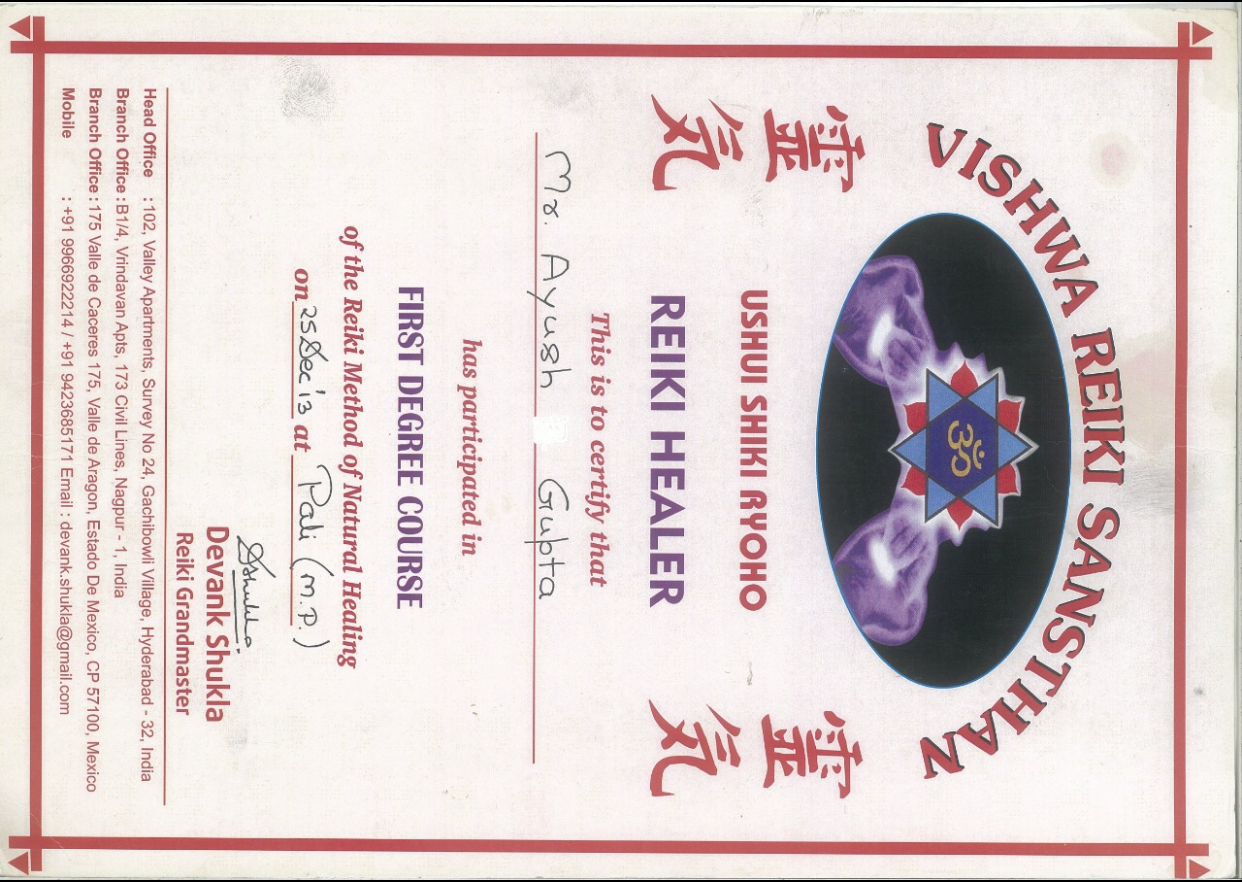 VISHWA REIKI SANSTHAN
ॐ
霊気
霊気
USHUI SHIKI RYOHO
REIKI HEALER
This is to certify that
Mr. Ayush Gupta
has participated in
FIRST DEGREE COURSE
of the Reiki Method of Natural Healing
on 25 Dec '13 at Pali (M.P.)
DShukla
Devank Shukla
Reiki Grandmaster
Head Office : 102, Valley Apartments, Survey No 24, Gachibowli Village, Hyderabad - 32, India
Branch Office : B1/4, Vrindavan Apts, 173 Civil Lines, Nagpur - 1, India
Branch Office : 175 Valle de Caceres 175, Valle de Aragon, Estado De Mexico, CP 57100, Mexico
Mobile : +91 9966922214 / +91 9423685171 Email : devank.shukla@gmail.com